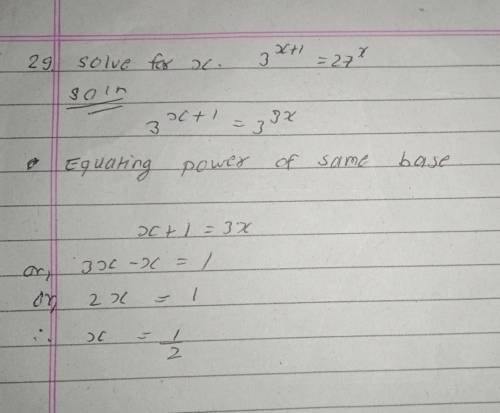 29. Solve for x. 3^{x+1} = 27^x
Soln
3^{x+1} = 3^{3x}
Equating power of same base
x+1 = 3x
or, 3x - x = 1
or, 2x = 1
∴ x = 1/2